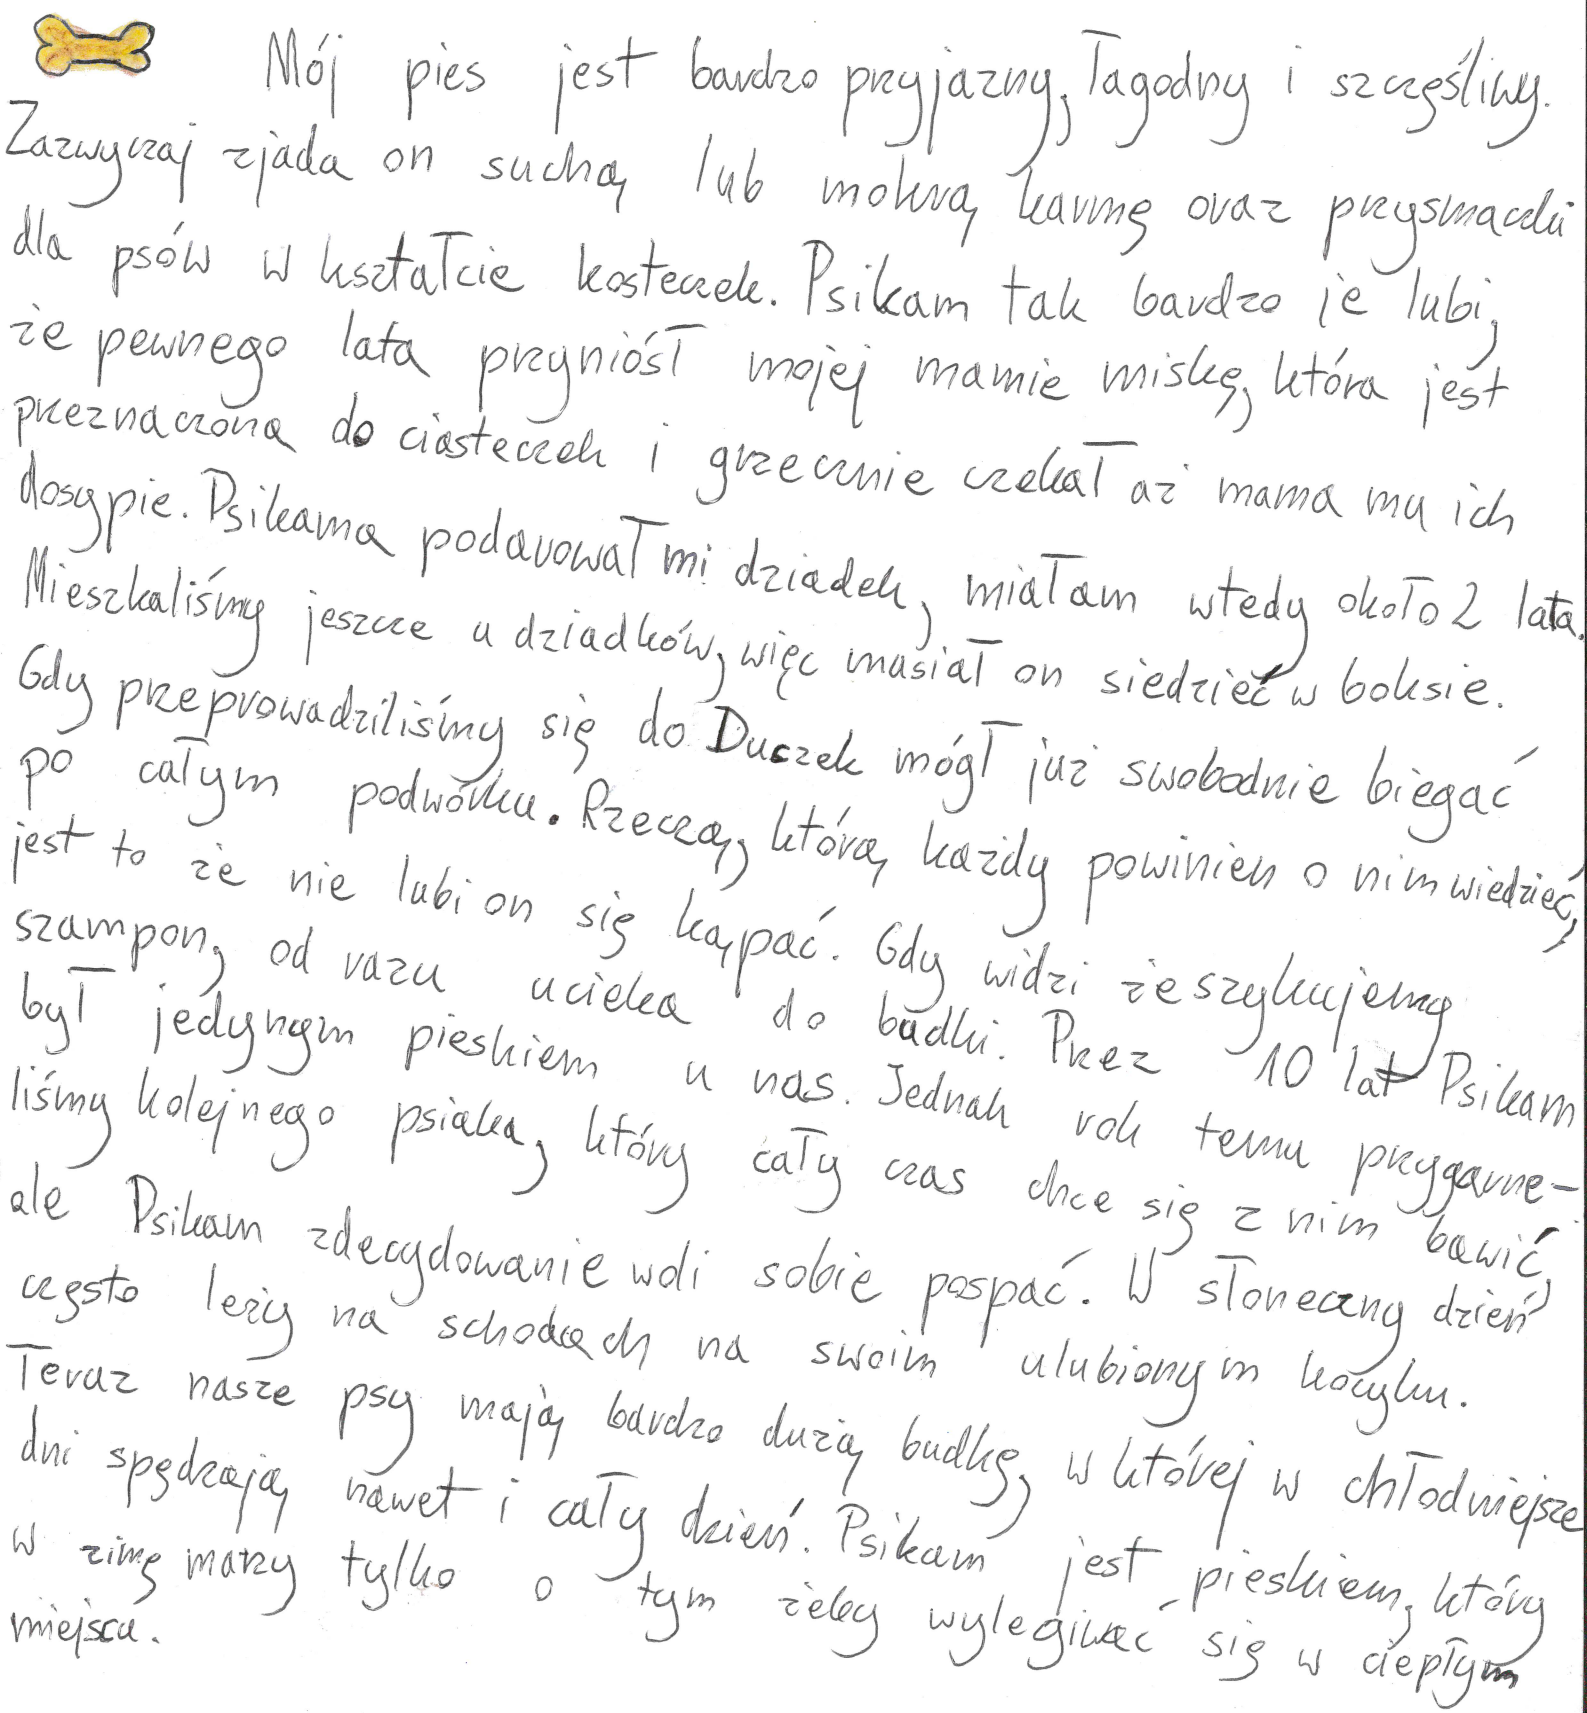 Mój pies jest bardzo przyjazny, łagodny i szczęśliwy.
Zazwyczaj zjada on suchą lub mokrą karmę oraz przysmaczki
dla psów w kształcie kosteczek. Psikam tak bardzo je lubi,
że pewnego lata przyniósł mojej mamie miskę, która jest
przeznaczona do ciasteczek i grzecznie czekał aż mama mu ich
dosypie. Psikama podarował mi dziadek, miałam wtedy około 2 lata.
Mieszkaliśmy jeszcze u dziadków, więc musiał on siedzieć w boksie.
Gdy przeprowadziliśmy się do Duczek mógł już swobodnie biegać
po całym podwórku. Rzeczą, którą każdy powinien o nim wiedzieć,
jest to że nie lubi on się kąpać. Gdy widzi że szykujemy
szampon, od razu ucieka do budki. Przez 10 lat Psikam
był jedynym pieskiem u nas. Jednak rok temu przygarnę-
liśmy kolejnego psiaka, który cały czas chce się z nim bawić,
ale Psikam zdecydowanie woli sobie pospać. W słoneczny dzień
często leży na schodach na swoim ulubionym kocyku.
Teraz nasze psy mają bardzo dużą budkę, w której w chłodniejsze
dni spędzają nawet i cały dzień. Psikam jest pieskiem, który
w zimę marzy tylko o tym żeby wylegiwać się w ciepłym
miejscu.